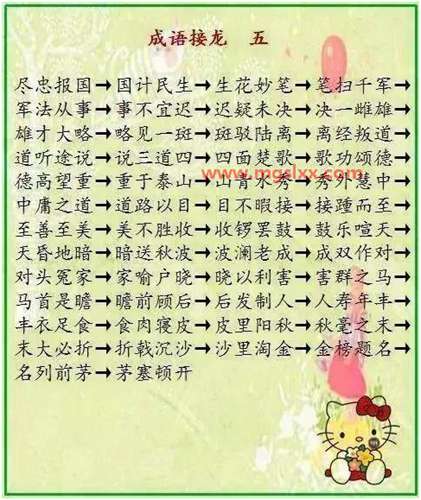 成语接龙 五
尽忠报国→国计民生→生花妙笔→笔扫千军→
军法从事→事不宜迟→迟疑未决→决一雌雄→
雄才大略→略见一斑→斑驳陆离→离经叛道→
道听途说→说三道四→四面楚歌→歌功颂德→
www.mgslxx.com
德高望重→重于泰山→山青水秀→秀外慧中→
中庸之道→道路以目→目不暇接→接踵而至→
至善至美→美不胜收→收锣罢鼓→鼓乐喧天→
天昏地暗→暗送秋波→波澜老成→成双作对→
对头冤家→家喻户晓→晓以利害→害群之马→
马首是瞻→瞻前顾后→后发制人→人寿年丰→
丰衣足食→食肉寝皮→皮里阳秋→秋毫之末→
末大必折→折戟沉沙→沙里淘金→金榜题名→
名列前茅→茅塞顿开